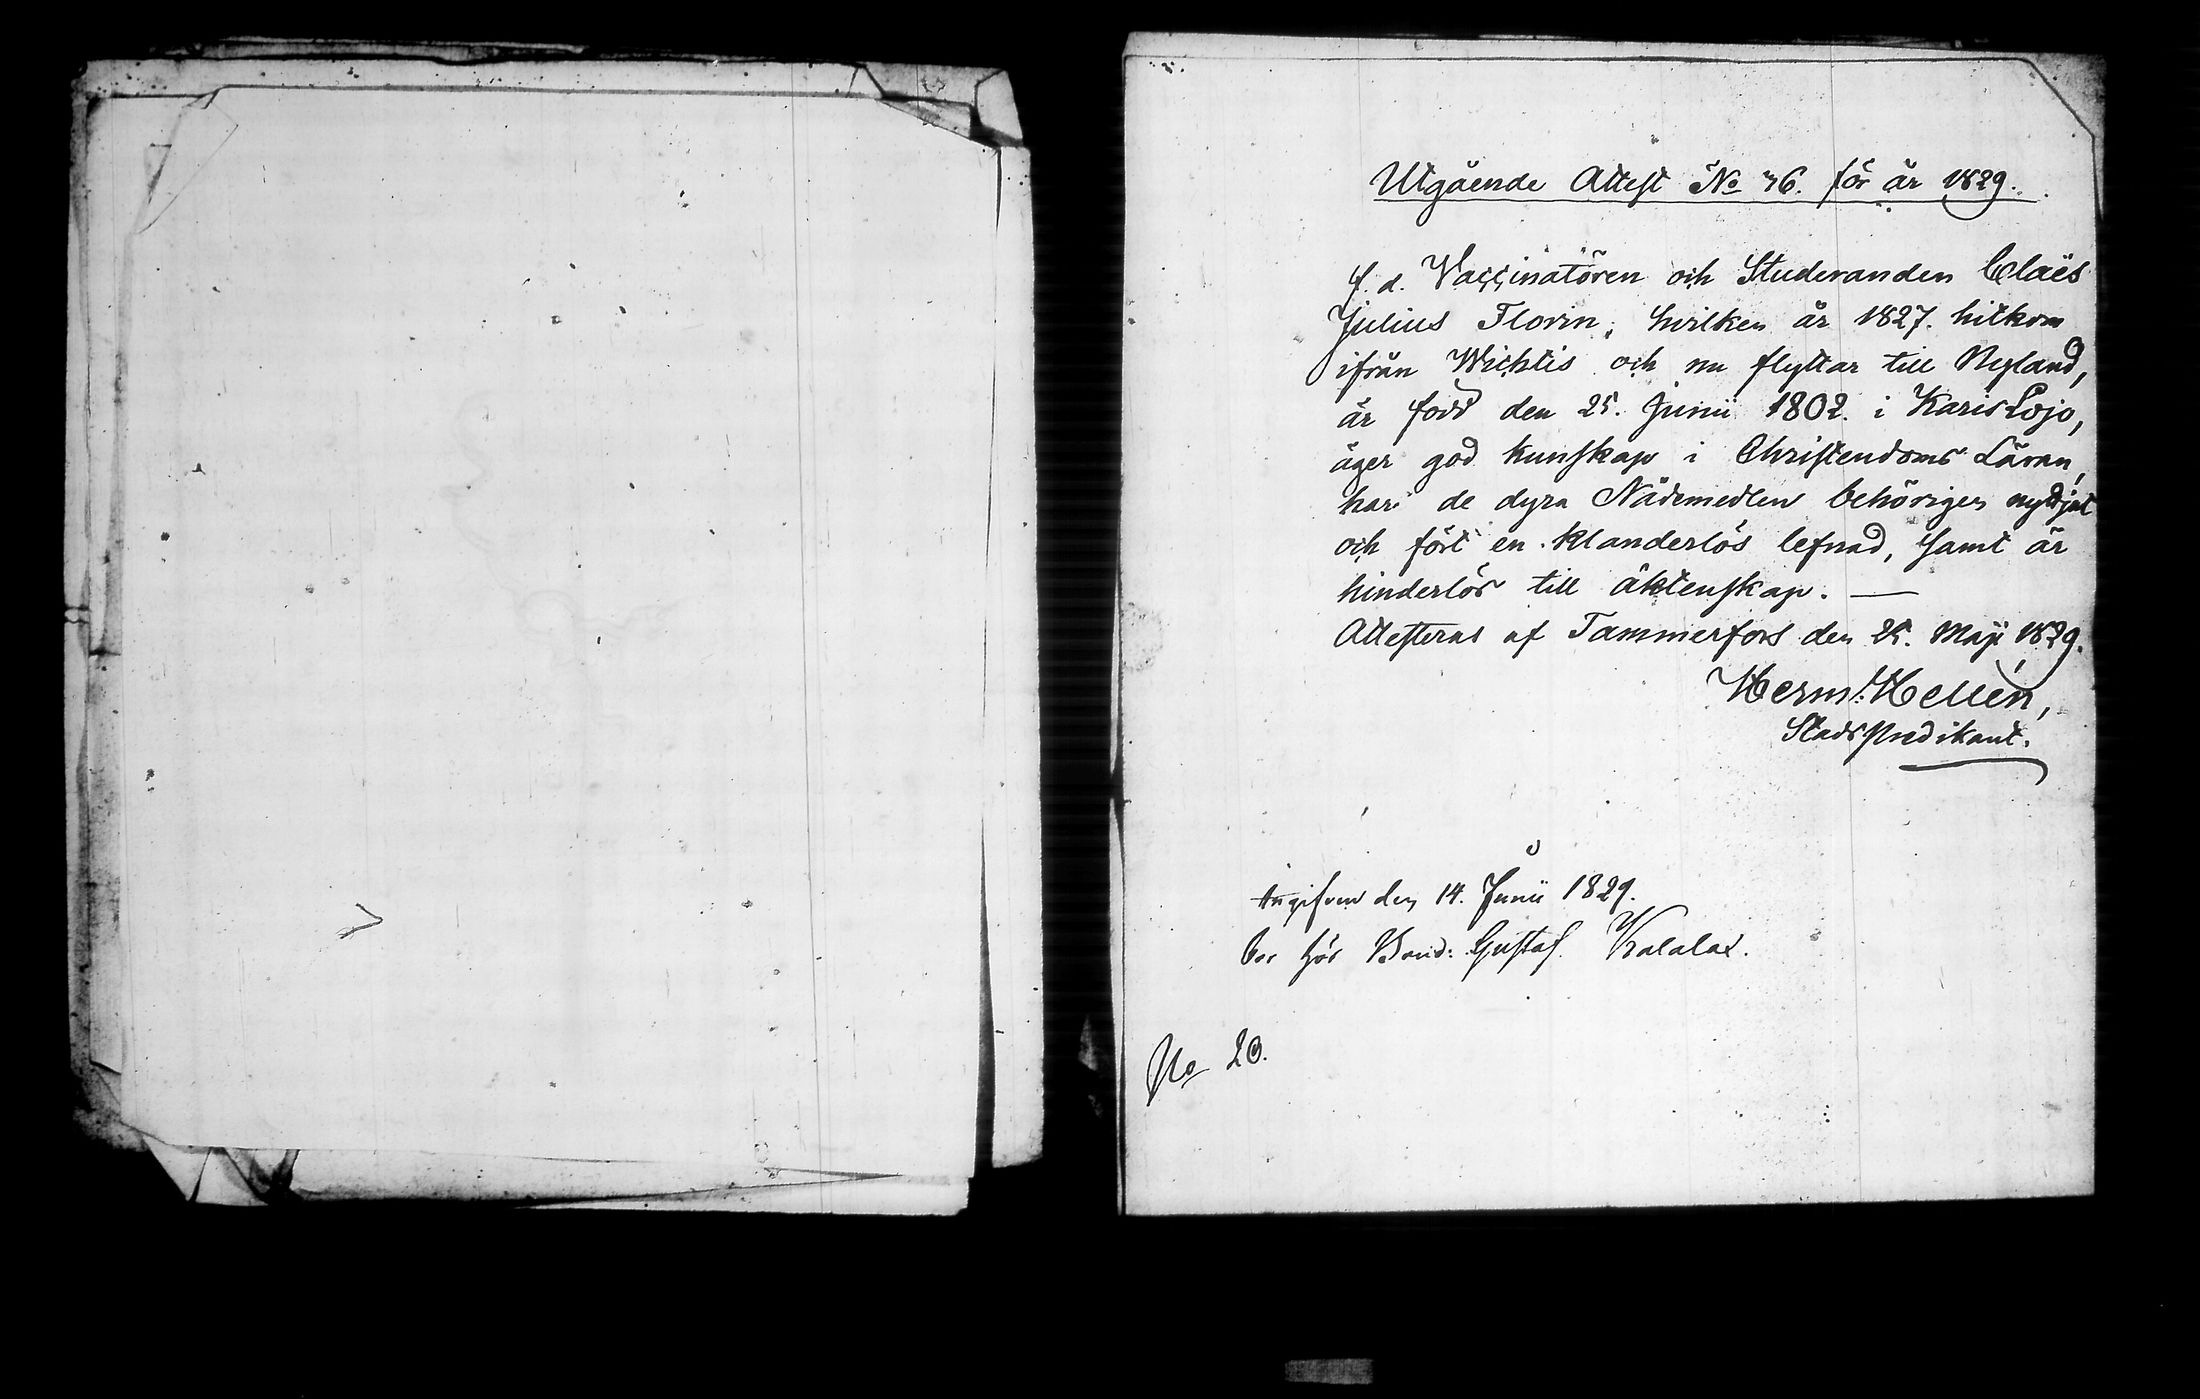 Utgående Attest No 46. för år 1829.
f. d. Vaccinatören och Studeranden Claës
Julius Florin, hvilken år 1827. hitkom
ifrån Wichtis och nu flyttar till Nyland,
är född den 25. Junii 1802. i KarisLojo,
äger god kunskap i Christendoms Läran,
har de dyra Nådemedlen behörigen nyttjat
och fört en klanderlös lefnad, samt är
hinderlös till äktenskap. —
Attesteras af Tammerfors den 25. Maji 1829.
Herm: Hellén,
Stadspredikant.
Angifven den 14. Junii 1829.
Bor hos Bond: Gustaf
No 20.